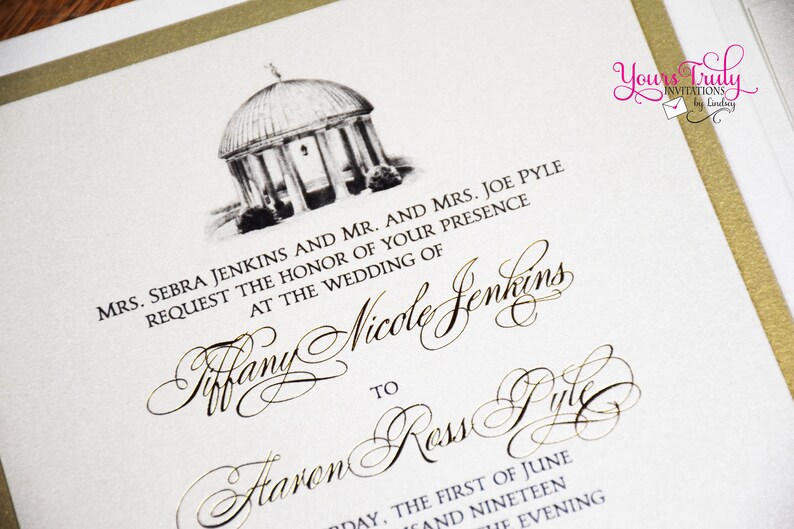 Yours Truly
INVITATIONS
by Lindsey
MRS. SEBRA JENKINS AND MR. AND MRS. JOE PYLE
REQUEST THE HONOR OF YOUR PRESENCE
AT THE WEDDING OF
Tiffany Nicole Jenkins
TO
Aaron Ross Pyle
THE FIRST OF JUNE
NINETEEN
THE EVENING